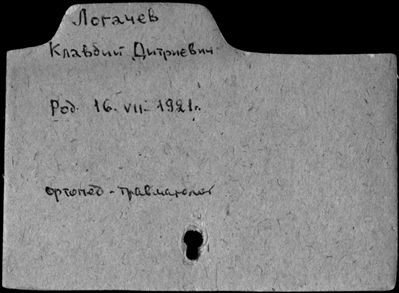 Логачев
Клавдий Дитриевич
Род. 16. VII. 1921г.
ортопед - травматолог